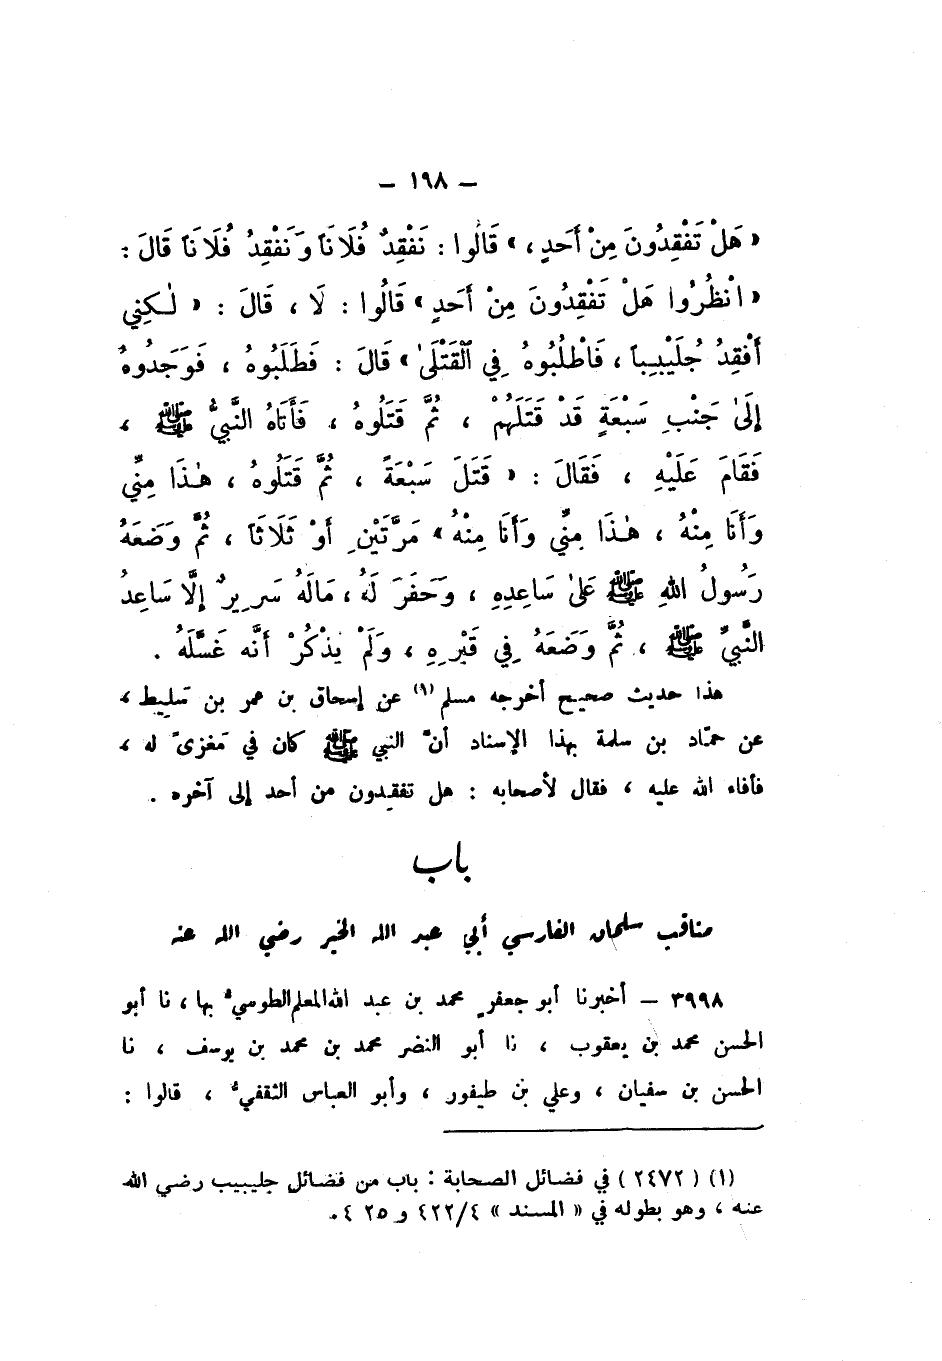 – ١٩٨ –
« هَلْ تَفْقِدُونَ مِنْ أَحَدٍ ، » قَالُوا : نَفْقِدُ فُلَاناً وَنَفْقِدُ فُلَاناً قَالَ :
« انْظُرُوا هَلْ تَفْقِدُونَ مِنْ أَحَدٍ » قَالُوا : لَا ، قَالَ : « لٰكِنِّي
أَفْقِدُ جُلَيْبِيباً ، فَاطْلُبُوهُ فِي ٱلْقَتْلَىٰ » قَالَ : فَطَلَبُوهُ ، فَوَجَدُوهُ
إِلَىٰ جَنْبِ سَبْعَةٍ قَدْ قَتَلَهُمْ ، ثُمَّ قَتَلُوهُ ، فَأَتَاهُ النَّبِيُّ ﷺ ،
فَقَامَ عَلَيْهِ ، فَقَالَ : « قَتَلَ سَبْعَةً ، ثُمَّ قَتَلُوهُ ، هٰذَا مِنِّي
وَأَنَا مِنْهُ ، هٰذَا مِنِّي وَأَنَا مِنْهُ » مَرَّتَيْنِ أَوْ ثَلَاثاً ، ثُمَّ وَضَعَهُ
رَسُولُ اللهِ ﷺ عَلَىٰ سَاعِدِهِ ، وَحَفَرَ لَهُ ، مَالَهُ سَرِيرٌ إِلَّا سَاعِدُ
النَّبِيِّ ﷺ ، ثُمَّ وَضَعَهُ فِي قَبْرِهِ ، وَلَمْ يَذْكُرْ أَنَّه غَسَّلَهُ .
هذا حديث صحيح أخرجه مسلم (١) عن إسحاق بن عمر بن سَلِيط ،
عن حمّاد بن سلمة بهذا الإسناد أنَّ النبي ﷺ كان في مَغزىً له ،
فأفاء الله عليه ، فقال لأصحابه : هل تفقِدون من أحد إلى آخره .
باب
مناقب سلمان الفارسي أبي عبد الله الخير رضي الله عنه
٣٩٩٨ – أخبرنا أبو جعفرٍ محمد بن عبد الله المعلم الطوسيُّ بها ، نا أبو
الحسن محمد بن يعقوب ، نا أبو النضر محمد بن محمد بن يوسف ، نا
الحسن بن سفيان ، وعلي بن طيفور ، وأبو العباس الثقفيُّ ، قالوا :
(١) ( ٢٤٧٢ ) في فضائل الصحابة : باب من فضائل جليبيب رضي الله
عنه ، وهو بطوله في « المسند » ٤٢٢/٤ و ٤٢٥ .